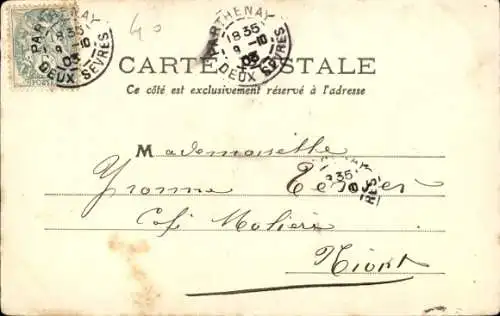 40
PARTHENAY
1835
9 -10
03
DEUX SÈVRES
PARTHENAY
1835
9 -10
03
DEUX SÈVRES
CARTE POSTALE
Ce côté est exclusivement réservé à l'adresse
Mademoiselle
Yvonne
Café Molière
Niort